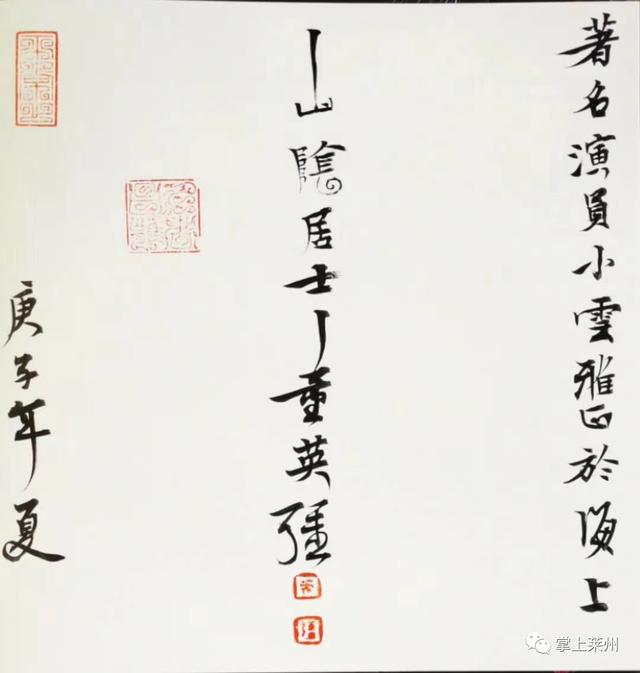 著名演員小雲雅正於海上
山陰居士董英强
庚子年夏
掌上莱州